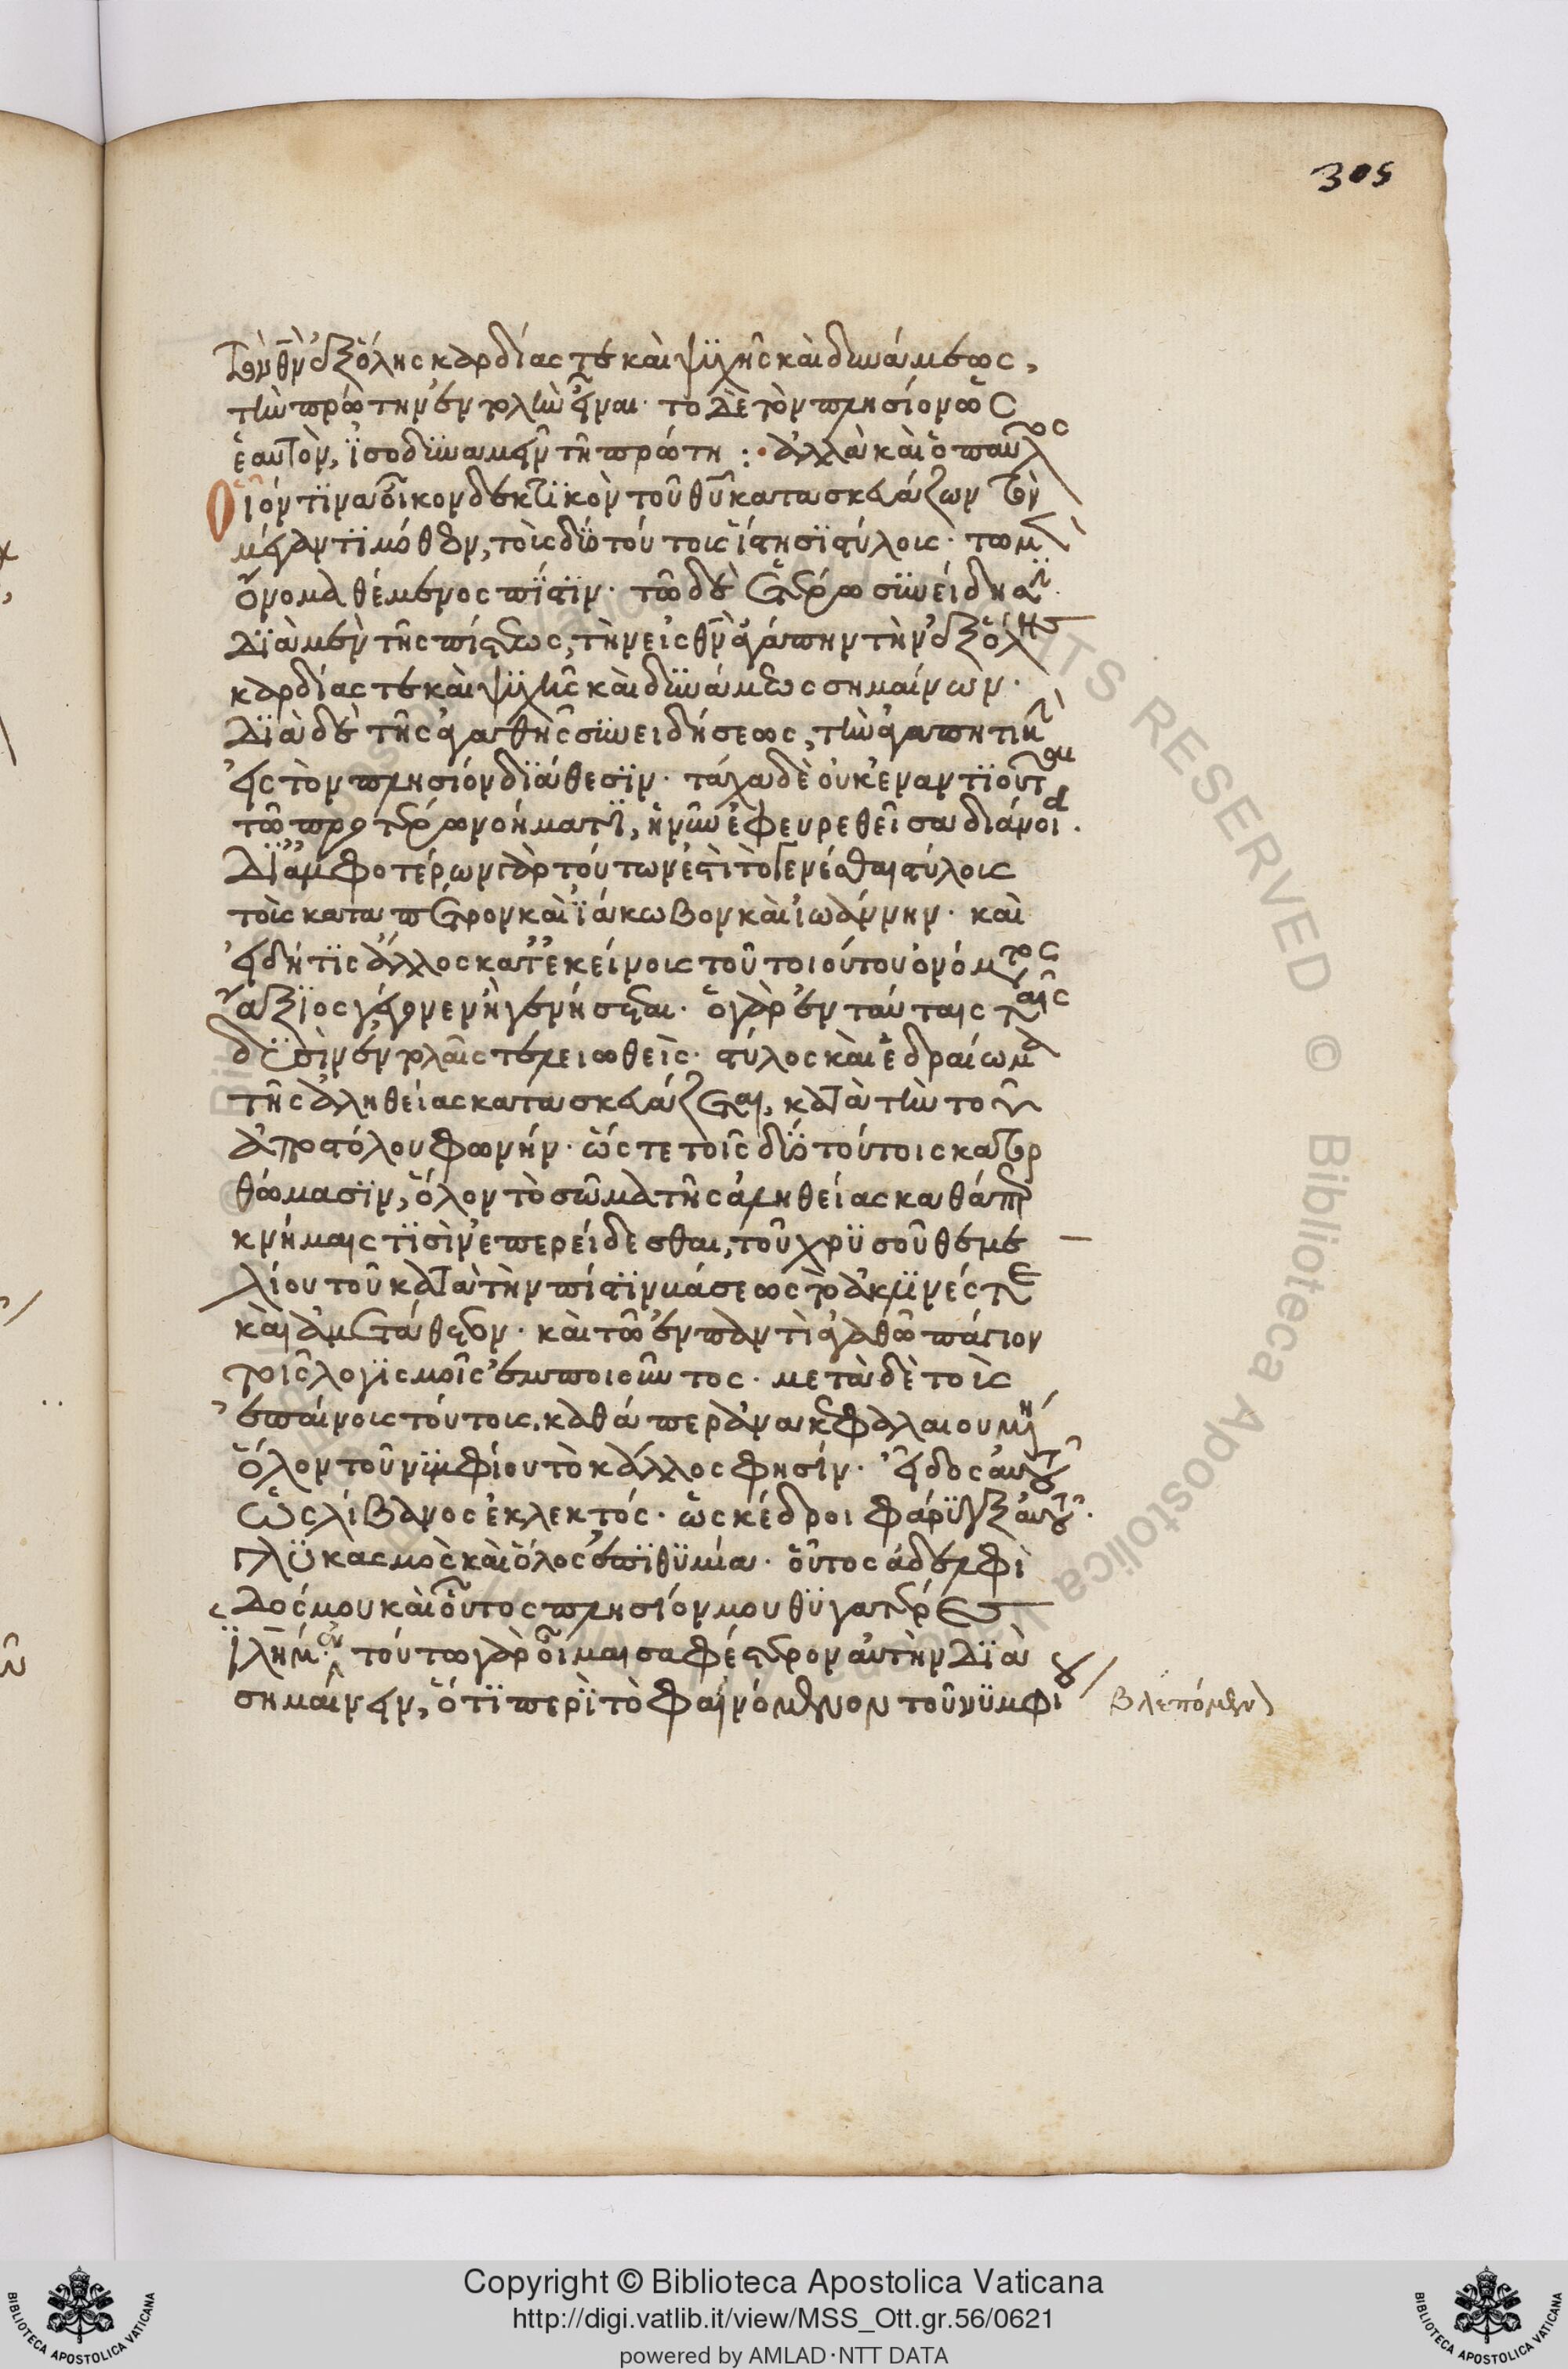 305
τὸν θν̅ ἐξ ὅλης καρδίας τε καὶ ψϋχῆς καὶ δυνάμεως,
τὴν πρώτην ἐντολὴν εἶναι· τὸ δὲ τὸν πλησίον ὡς
ἑαυτὸν, ϊσοδϋναμεῖν τῆ πρώτη :· ἀλλὰ καὶ ὁ παῦλος
Οἷόν τϊνα οἶκον δεκτϊκὸν τοῦ θυ̅ κατασκευάζων τὸν
μέγαν τϊμόθεον, τοῖς δϋὸ τούτοις ἵστησϊ στύλοις· τῶ μὲν
ὄνομα θέμενος πίστϊν· τῶ δὲ ἑτέρω συνείδησϊν·
Δϊὰ μὲν τῆς πίστεως, τὴν εἰς θν̅ ἀγάπην τὴν ἐξ ὅλης
καρδίας τε καὶ ψϋχῆς καὶ δϋνάμεως σημαίνων·
Δϊὰ δὲ τῆς ἀγαθῆς συνειδήσεως, τὴν ἀγαπητικὴν
εἰς τὸν πλησίον δϊάθεσϊν· τάχα δὲ οὐκ ἐναντϊοῦται
τῶ προτέρω νοήματϊ, ἡ νῦν ἐφευρεθεῖσα διάνοια·
Δϊ' ἀμφοτέρων γὰρ τούτων ἐστὶ τὸ γενέσθαι στύλοις
τοῖς κατα πέτρον καὶ ϊάκωβον καὶ ἰωάννην· καὶ
εἰ δή τϊς ἄλλος κατ' ἐκείνοις τοῦ τοιούτου ὀνόματος
ἄξϊος γέγονεν ἢ γενήσεται· ὁ γὰρ ἐν ταύταις ταῖς
δϋσὶν ἐντολαῖς τελειωθεὶς· στύλος καὶ ἑδραίωμα
τῆς ἀληθείας κατασκευάζεται, κατὰ τὴν τοῦ
ἀποστόλου φωνήν· ὥς τε τοῖς δϋὸ τούτοις κατορ
θώμασϊν, ὅλον τὸ σῶμα τῆς ἀληθείας καθάπερ
κνήμαις τϊσὶν ἐπερείδεσθαι, τοῦ χρϋσοῦ θεμε
λίου τοῦ κατὰ τὴν πίστϊν βάσεως τὸ ἀκλϊνές τε
καὶ ἀμετάθετον· καὶ τῶ ἐν παντὶ ἀγαθῶ πάγιον
τοῖς λογϊσμοῖς ἐμποιοῦντος· μετὰ δὲ τοὶς
ἐπαίνοις τούτοις, καθάπερ ἀνακεφαλαιουμένη
ὅλον τοῦ νϋμφίου τὸ κάλλος φησίν· εἶδος αὐτοῦ
Ὡς λίβανος ἐκλεκτός· ὡς κέδροι φάρϋγξ αὐτοῦ·
Γλϋκασμὸς καὶ ὅλος ἐπϊθϋμία· οὗτος ἀδελφι
δός μου καὶ οὗτος πλησίον μου θϋγατέρες
ϊλη̅μ· ἐν τούτω γὰρ οἶμαι σαφέστερον αὐτὴν δϊὰ
σημαίνειν, ὅτϊ περὶ τὸ φαινόμενον τοῦ νϋμφίου
βλεπόμενον